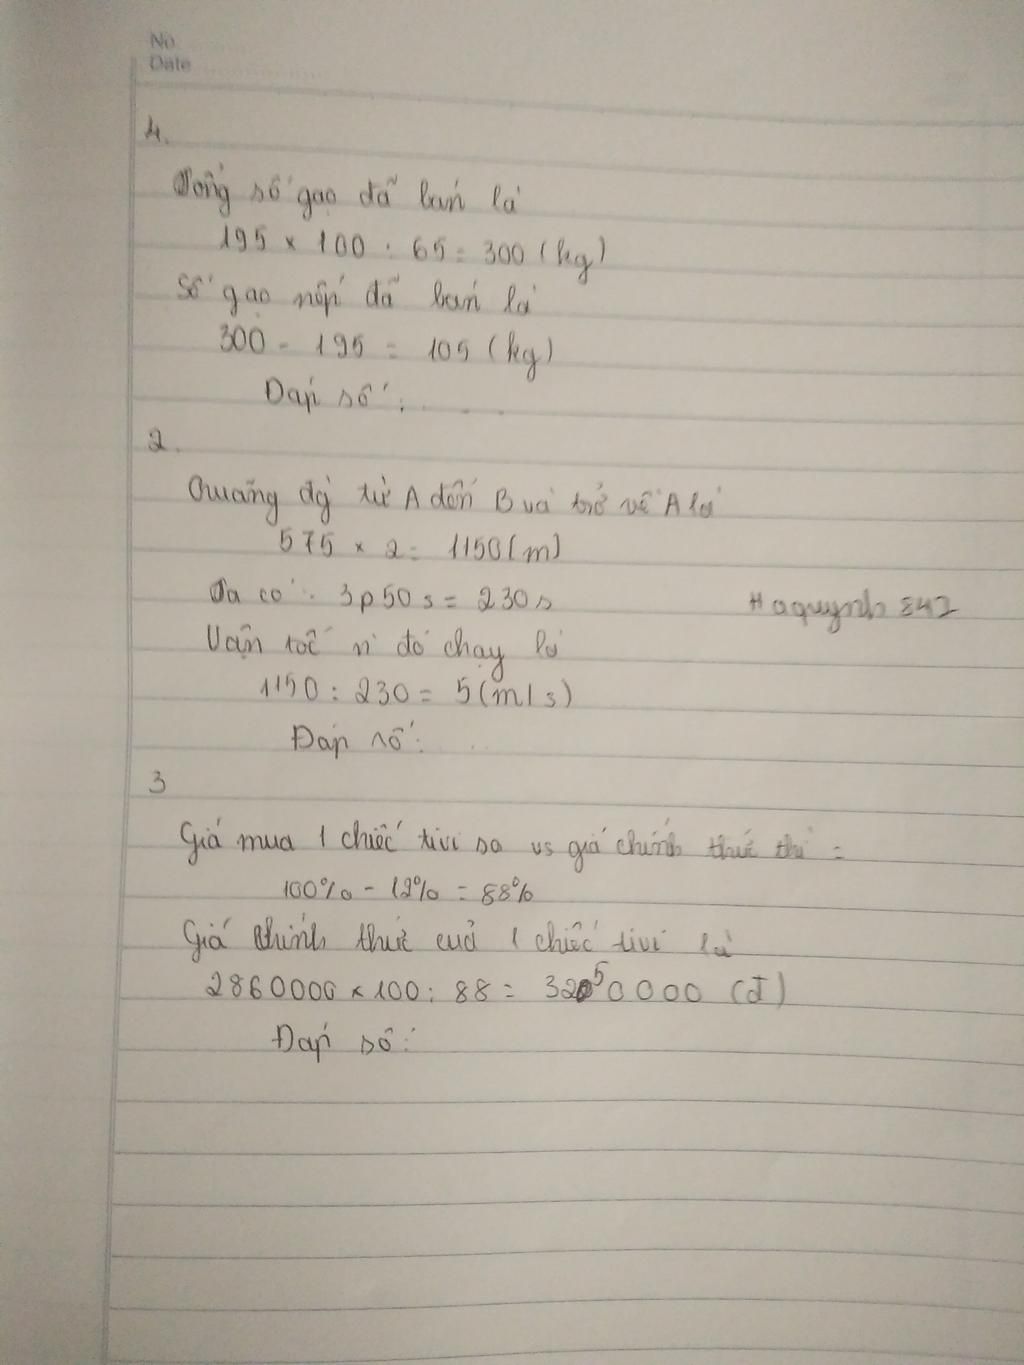 No
Date
4.
Tổng số gạo đã bán là
195 x 100 : 65 = 300 (kg)
Số gạo nếp đã bán là
300 - 195 = 105 (kg)
Đáp số : . . . .
2.
Quãng đg từ A đến B và trở về A là
575 x 2 = 1150 (m)
Ta có : 3p50s = 230s
Haquynh842
Vận tốc n đó chạy là
1150 : 230 = 5 (m/s)
Đáp số : . .
3
Giá mua 1 chiếc tivi so vs giá chính thức thì =
100% - 12% = 88%
Giá chính thức của 1 chiếc tivi là
2860000 x 100 : 88 = 3250000 (đ)
Đáp số :